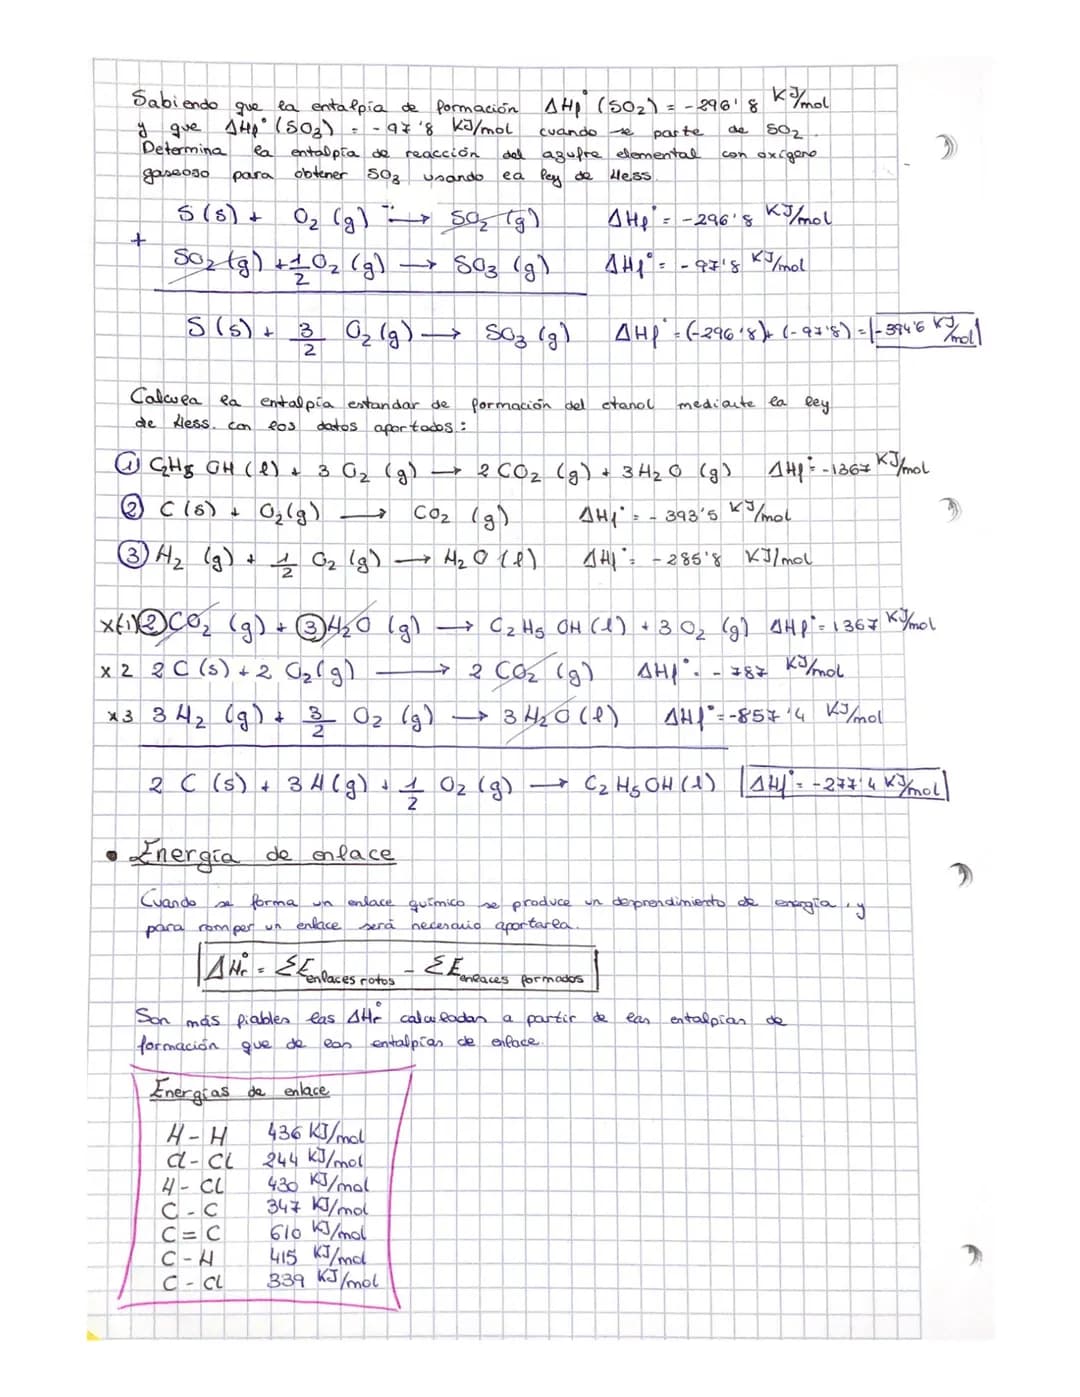 Sabiendo que la entalpía de formación ΔHf° (SO₂) = -296'8 KJ/mol
y que ΔHf° (SO₃) = -97'8 KJ/mol cuando se parte de SO₂.
Determina la entalpía de reacción del azufre elemental con oxígeno
gaseoso para obtener SO₃ usando la ley de Hess.
S (s) + O₂ (g) → SO₂ (g) ΔHf° = -296'8 KJ/mol
+
SO₂ (g) + 1/2 O₂ (g) → SO₃ (g) ΔHf° = -97'8 KJ/mol
S (s) + 3/2 O₂ (g) → SO₃ (g) ΔHf° = (-296'8) + (-97'8) = -394'6 KJ/mol
Calcula la entalpía estandar de formación del etanol mediante la ley
de Hess. con los datos aportados:
① C₂H₅ OH (l) + 3 O₂ (g) → 2 CO₂ (g) + 3 H₂O (g) ΔHf° = -1367 KJ/mol
② C (s) + O₂ (g) → CO₂ (g) ΔHf° = -393'5 KJ/mol
③ H₂ (g) + 1/2 O₂ (g) → H₂O (l) ΔHf° = -285'8 KJ/mol
x(-1) ② CO₂ (g) + ③ H₂O (g) → C₂H₅ OH (l) + 3 O₂ (g) ΔHf° = 1367 KJ/mol
x 2 2 C (s) + 2 O₂ (g) → 2 CO₂ (g) ΔHf° = -787 KJ/mol
x3 3 H₂ (g) + 3/2 O₂ (g) → 3 H₂O (l) ΔHf° = -857'4 KJ/mol
2 C (s) + 3 H (g) + 1/2 O₂ (g) → C₂H₅OH (l) ΔHf° = -277'4 KJ/mol
• Energía de enlace
Cuando se forma un enlace químico se produce un desprendimiento de energía, y
para romper un enlace será necesario aportarla.
ΔHr° = ΣE enlaces rotos - ΣE enlaces formados
Son más fiables las ΔHr° calculadas a partir de las entalpías de
formación que de las entalpías de enlace.
Energías de enlace
H - H 436 KJ/mol
Cl - Cl 244 KJ/mol
H - Cl 430 KJ/mol
C - C 347 KJ/mol
C = C 610 KJ/mol
C - H 415 KJ/mol
C - Cl 339 KJ/mol